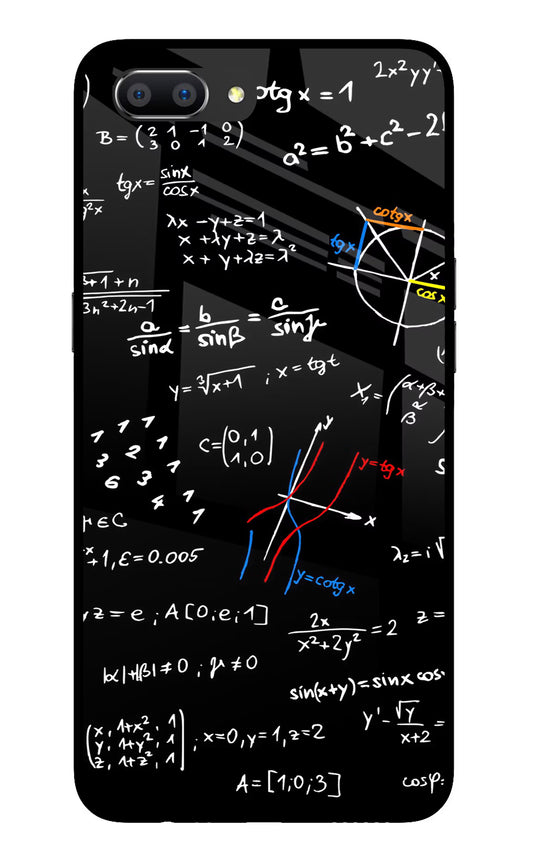 otg x = 1
2x²yy'-
B = (2 1 -1 0
3 0 1 2)
a² = b² + c² - 2
tgx = sinx
cosx
x
y²x
λx - y + z = 1
x + λy + z = λ
x + y + λz = λ²
cotgx
tgx
x
cosx
3+1 + n
3n² + 2n - 1
a/sinα = b/sinβ = c/sinγ
y = ∛x+1 ; x = tgt
X₁ = (α+β+
α
β
C = (0, 1
1, 0)
1 1 1
1
3 2 1
6 3 1
4 1
1
y
y = tgx
x
y = cotgx
μ∈C
x
+1, ε = 0.005
λ₂ = i√
, z = e ; A[0; e; 1]
2x
x² + 2y² = 2
z =
|α| + |β| ≠ 0 ; μ ≠ 0
sin(x+y) = sinx cos
(x, 1+x², 1
y, 1+y², 1
z, 1+z², 1) ; x=0, y=1, z=2
y' - √y
x+2 =
A = [1; 0; 3]
cosφ =